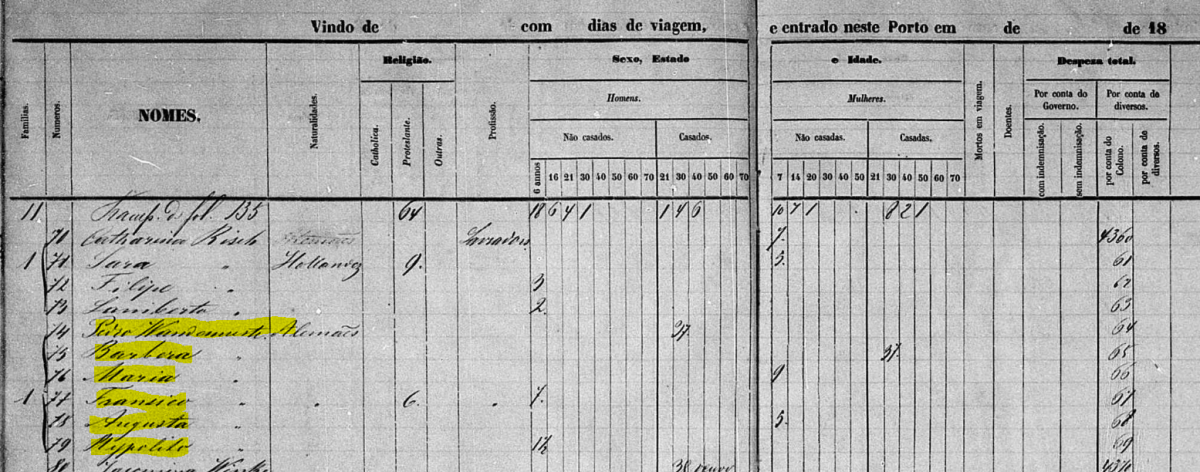 Vindo de com dias de viagem, e entrado neste Porto em de de 18
Religião. Sexo, Estado e Idade. Despeza total.
Familias. Numeros. NOMES. Naturalidades. Catholica. Protestante. Outras. Profissão. Homens. Mulheres. Mortos em viagem. Doentes. Por conta do Governo. Por conta de diversos.
Não casados. Casados. Não casadas. Casadas. com indemnisação. sem indemnisação. por conta do Colono. por conta de diversos.
6 annos 16 21 30 40 50 60 70 21 30 40 50 60 70 7 14 20 30 40 50 21 30 40 50 60 70
11 Transp. de fol. 135 64 18 6 4 1 1 4 6 10 7 1 8 2 1
Catharina Risch 7. 4360
1 71 Sara " Hollandez 9. 5. 61
72 Filipe " 3 62
73 Lamberto " 2. 63
74 Pedro Alemães 37 64
75 Barbera " 37 65
76 Maria " 9 66
1 77 Fransico " " 6. " 7. 67
78 Augusta " 5. 68
79 Hypolito " 1½ 69
80